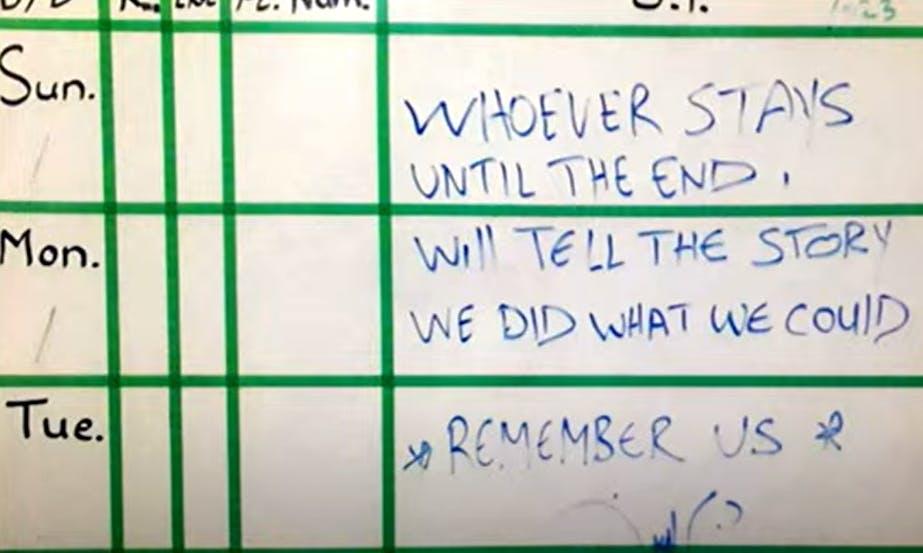 O.T.
Sun.
WHOEVER STAYS
UNTIL THE END.
Mon.
Will TELL THE STORY
WE DID WHAT WE COUlD
Tue.
*REMEMBER US *